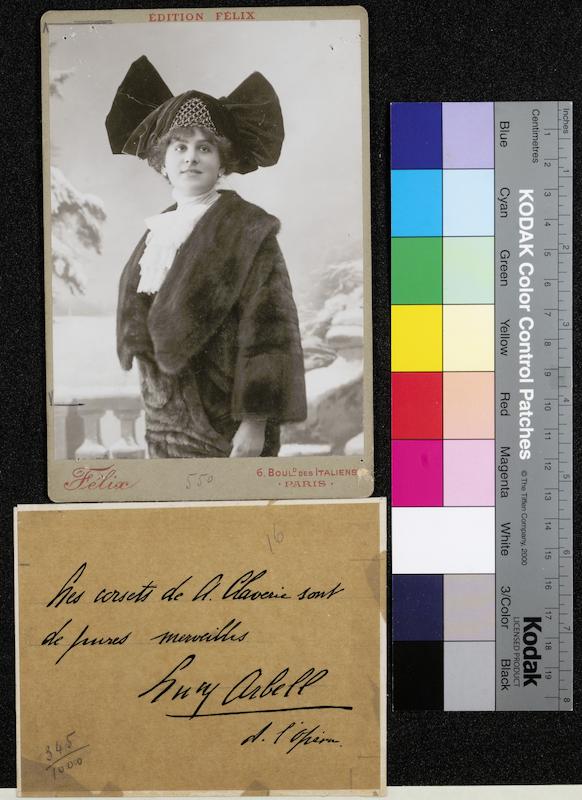 ÉDITION FÉLIX
Félix
550
6. BOULD DES ITALIENS
· PARIS ·
16
Les corsets de A. Claverie sont
de pures merveilles
Lucy Arbell
d. l'Opéra.
345
1000
Inches
Centimetres
1 2 3 4 5 6 7 8
1 2 3 4 5 6 7 8 9 10 11 12 13 14 15 16 17 18 19
KODAK Color Control Patches
© The Tiffen Company, 2000
Kodak
LICENSED PRODUCT
Blue
Cyan
Green
Yellow
Red
Magenta
White
3/Color
Black